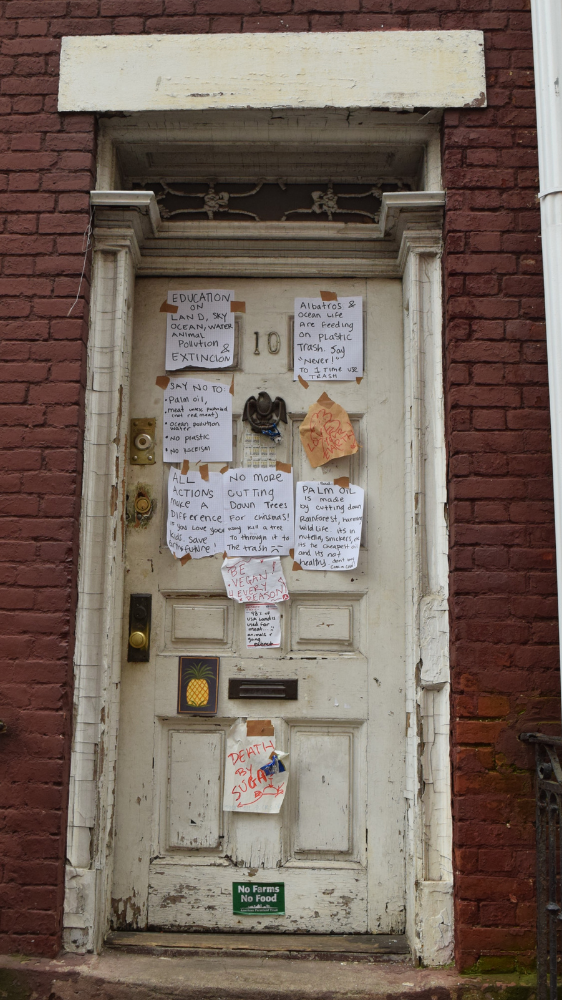 EDUCATION
ON
LAND, SKY
OCEAN, WATER
ANIMAL
POLLUTION &
EXTINCION
10
Albatros &
Ocean life
are Feeding
on Plastic
Trash. Say
"Never!"
TO 1 TIME USE
TRASH
SAY NO TO
Palm oil,
meat
(not red meat)
Ocean pollution
water
NO plastic
NO Racism
ALL
ACTIONS
MAKE A
Difference
if you Love your
kids. Save
future
NO MORE
CUTTING
Down Trees
For CHRISMAS!
Why kill a tree
To through it to
The trash
PALM OIL
IS MADE
by cutting down
Rainforest, harming
Wild life its in
nutella, Snickers,
its the cheapest oil
and its not
healthy
BE
VEGAN
EVERY
REASON
USA Land is
used for
meat
animals
DEATH
BY
SUGAR
No Farms
No Food